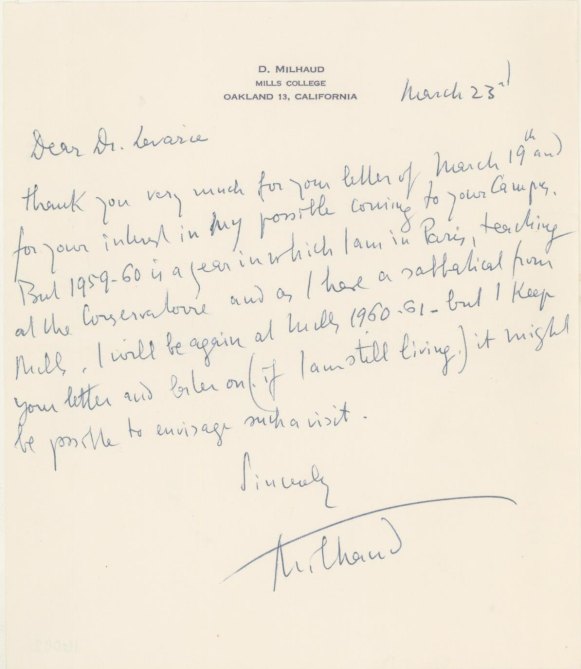 D. MILHAUD
MILLS COLLEGE
OAKLAND 13, CALIFORNIA
March 23rd
Dear Dr. Levarie
Thank you very much for your letter of March 19th and
for your interest in my possible coming to your Campus.
But 1959-60 is a year in which I am in Paris, teaching
at the Conservatoire and as I have a sabbatical from
Mills. I will be again at Mills 1960-61 - but I keep
your letter and later on (if I am still living) it might
be possible to envisage such a visit.
Sincerely
Milhaud